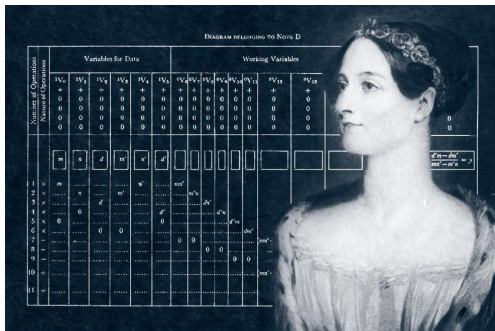 Diagram belonging to Note D
Number of Operations
Nature of Operations
Variables for Data
Working Variables
¹V₀ ¹V₁ ¹V₂ ¹V₃ ¹V₄ ¹V₅ ⁰V₆ ⁰V₇ ⁰V₈ ⁰V₉ ⁰V₁₀ ⁰V₁₁
+ + + + + + + + + + + + + +
0 0 0 0 0 0 0 0 0 0 0 0 0 0 0
0 0 0 0 0 0 0 0 0 0 0 0 0 0 0
0 0 0 0 0 0 0 0 0 0 0 0 0 0
0 0 0 0 0 0 0 0 0 0 0 0 0 0
m n d m' n' d' d'm−dm' / mn'−m'n = y
1 × m n' mn'
2 × n m' m'n
3 × d dn'
4 × 0 d' d'n
5 × 0 0 d'm
6 × 0 0 dm'
7 − 0 0
8 − 0 0
9 − 0 0
10 ÷
11 ÷